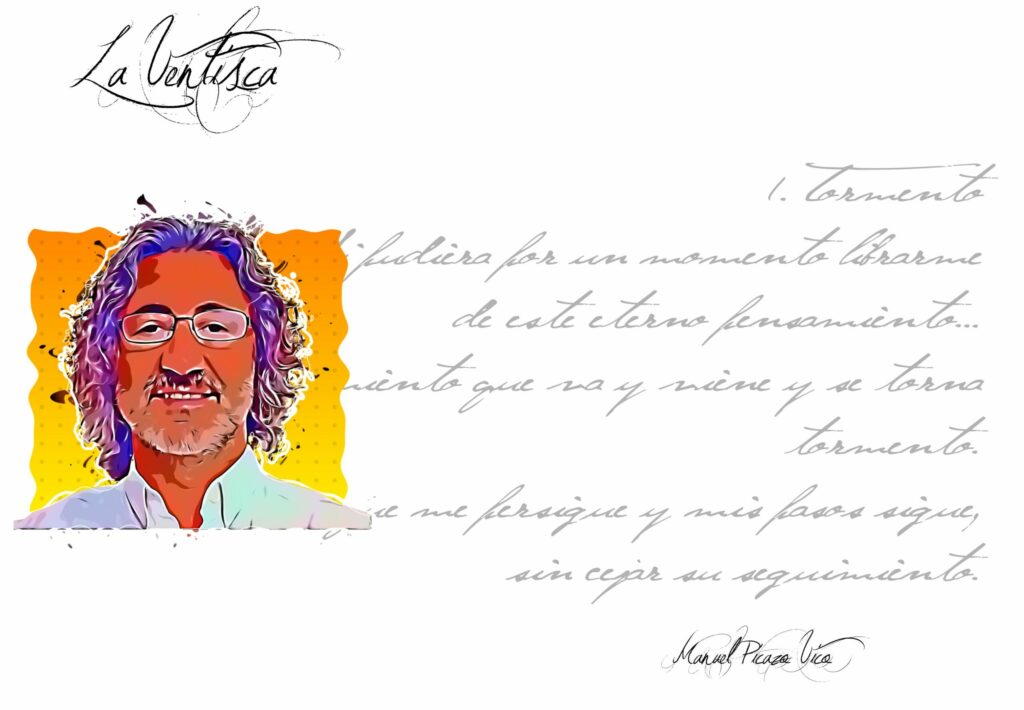 La Ventisca
1. Tormento
pudiera por un momento librarme
de este eterno pensamiento...
que va y viene y se torna
tormento.
me persigue y mis pasos sigue,
sin cejar su seguimiento.
Manuel Picazo Vico